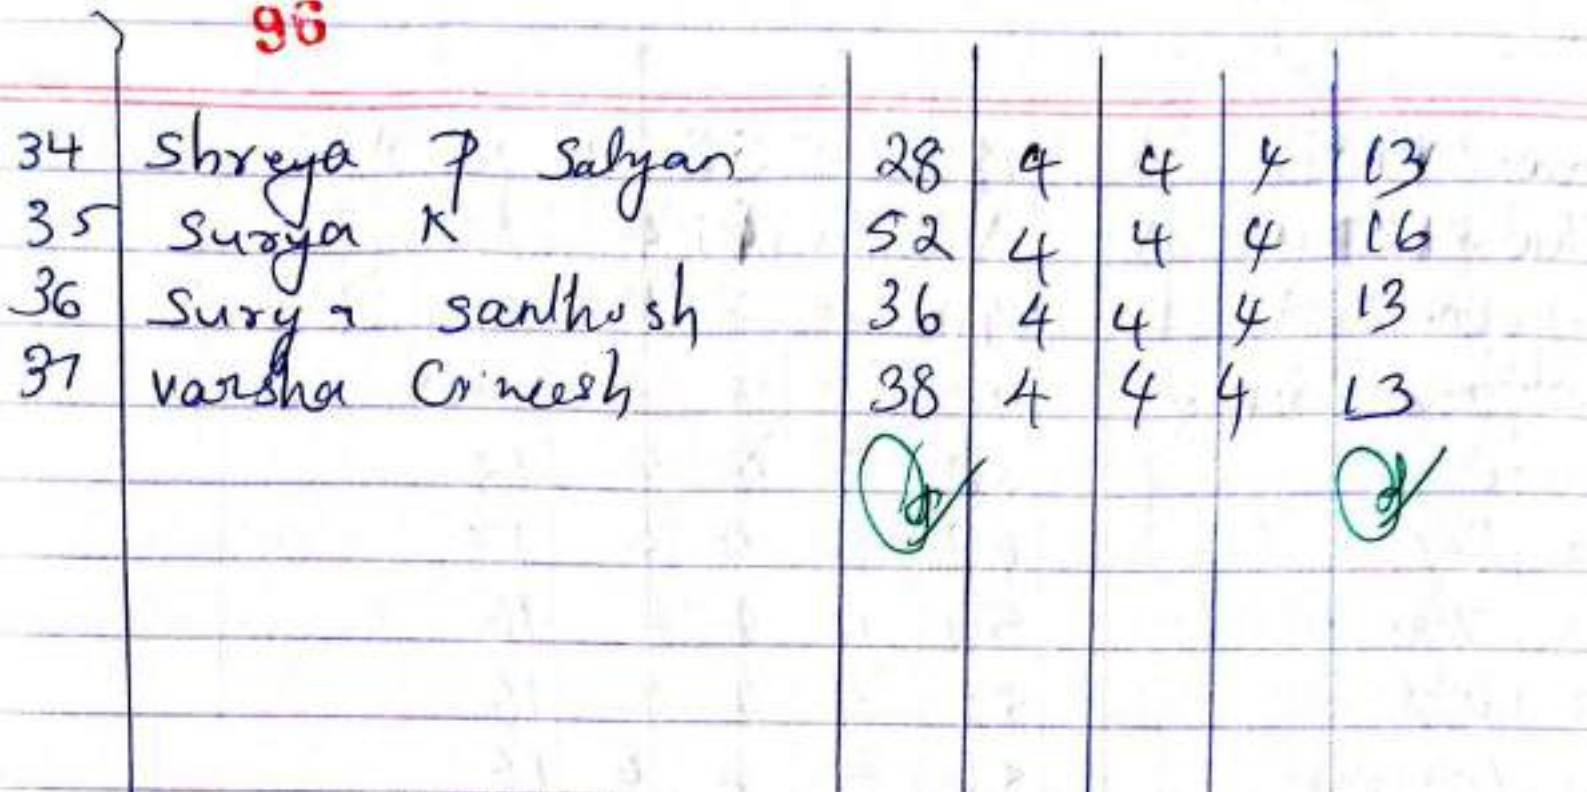 96
34 Shreya P Salyan 28 4 4 4 13
35 Surya K 52 4 4 4 16
36 Surya Santhosh 36 4 4 4 13
37 Varsha 38 4 4 4 13